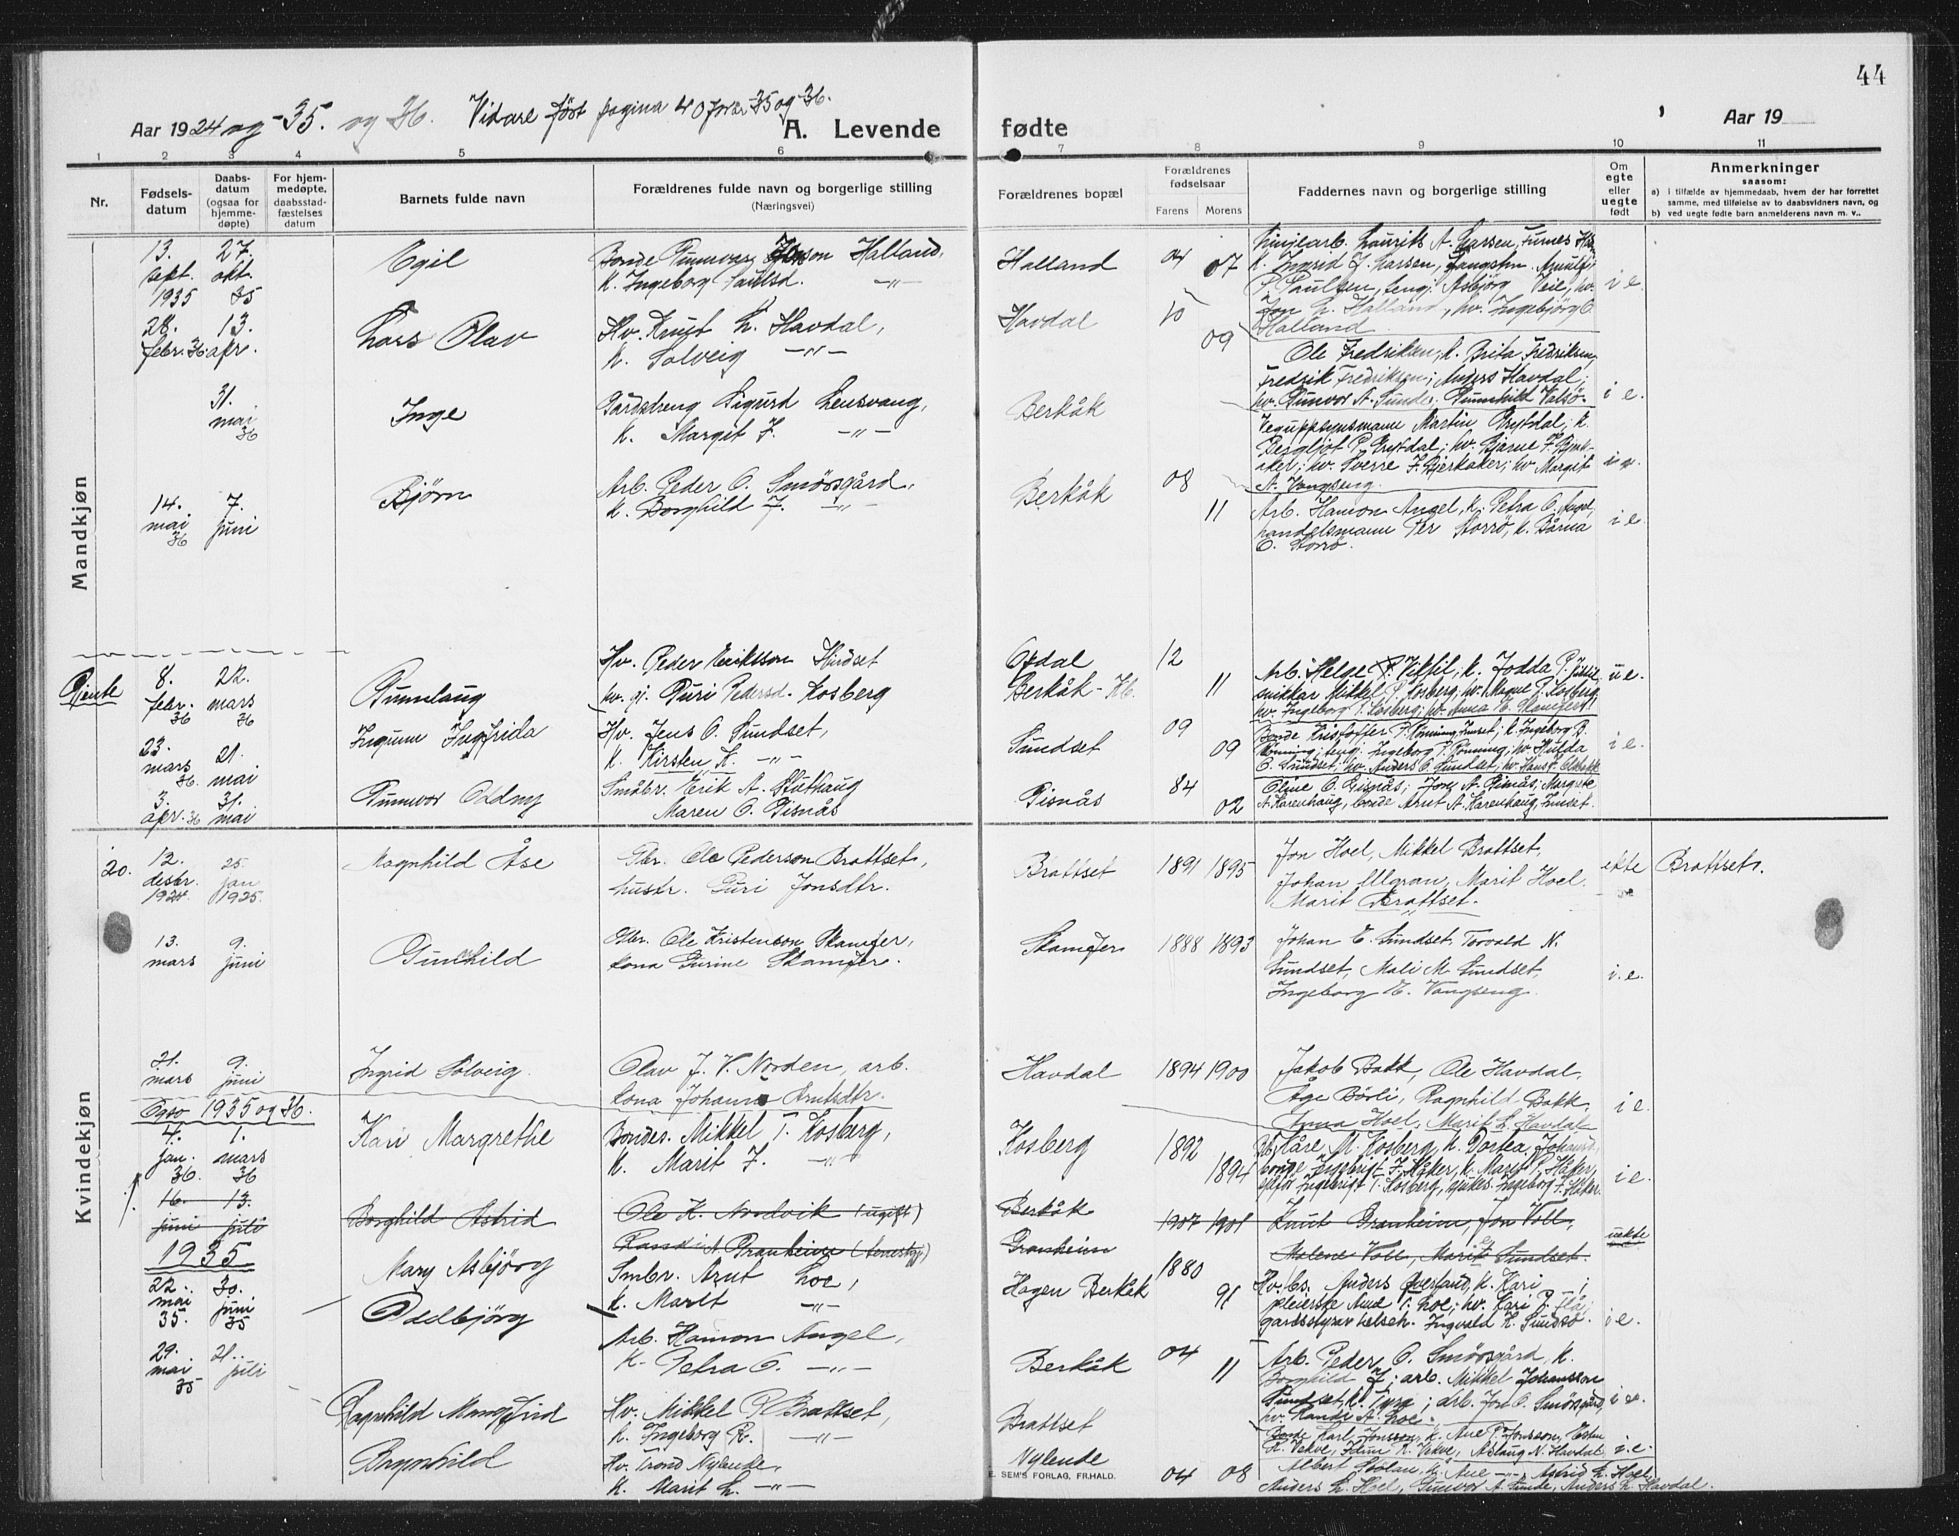 44
Aar 1924 og -35. og 36. Vidare ført pagina 40 for år 35 og 36.
A. Levende fødte
Aar 19
1 2 3 4 5 6 7 8 9 10 11
Nr.
Fødsels-datum
Daabs-datum (ogsaa for hjemme-døpte)
For hjem-medøpte, daabsstad-fæstelses datum
Barnets fulde navn
Forældrenes fulde navn og borgerlige stilling
(Næringsvei)
Forældrenes bopæl
Forældrenes fødselsaar
Farens Morens
Faddernes navn og borgerlige stilling
Om egte eller uegte født
Anmerkninger
saasom:
a) i tilfælde av hjemmedaab, hvem der har forrettet samme, med tilføielse av to daabsvidners navn, og
b) ved uegte fødte barn anmelderens navn m. v..
Mandkjøn
13. sept. 1935 27. okt. 35
Egil
Bonde Halland,
K. Ingeborg Paulsd. -"-
Halland
04 07
Linjearb. Laurits A. Larsen, Furnes
K. Ingrid J. Larsen,
P. Paulsen, Asbjørg Veil, hv.
Jon L. Halland, hv. Ingebjørg O.
Halland
i e.
28. febr. 36 13. apr.
Lars Olav
Hv. Knut L. Havdal,
K. Solveig -"-
Havdal
10 09
Ole Fredriksen, k. Brita Fredriksen,
Fredrik Fredriksen; Anders Havdal;
hv. Gunvor A. Sunde, Gunnhild Valsø.
i e.
31. mai 36
Inge
Gardsdreng Sigurd Leusvang,
K. Margit F. -"-
Berkåk
Veguppsynsmann Martin Grytdal; k.
Bergljot P. Grytdal; hv. Bjarne F. Bjerkaker; hv. Sverre F. Bjerkaker; hv. Margit
A. Vangseng.
14. mai 36 7. juni
Bjørn
Arb. Peder O. Smørsgård,
K. Borghild J. -"-
Berkåk
08 11
Arb. Hamon Angel, k. Petra O. Angel,
handelsmann Per Storrø, k. Bårna
O. Storrø.
i e.
Gjente
8. febr. 36 22. mars 36
Gunnlaug
Hv. Peder Eriksson Hindset
hv. gj. Guri Pedersd. Kosberg
Opdal
Berkåk
12 11
Arb. Helge P. Vikfil, k. Jodda P.
snikkar Mikkel P. Kosberg, hv. Magne P. Kosberg,
hv. Ingeborg T. Kosberg; hv. Anna K. Skamfer
u e.
23. mars 36. 21. mai
Ingunn Ingfrida
Hv. Jens O. Sundset,
K. Kirsten K. -"-
Sundset
09 09
Bonde Kristoffer P. Rønning, Innset; k. Ingeborg B.
Rønning; Ingeborg P. Rønning; hv. Hulda
O. Sundset; hv. Anders O. Sundset; hv. Hans F.
i e.
3. apr. 36 31. mai
Gunnvor Oddny
Småbr. Erik A. Stuthaug
Maren O. Gisnås
Gisnås
84 02
Oline O. Gisnås; Jon A. Gisnås; Margrete
A. Karenhaug, bonde Arnt A. Karenhaug, Innset.
Kvindekjøn
20. 12. desbr. 1924 25. jan 1925.
Magnhild Åse
Gbr. Ole Pederson Brattset,
hustr. Guri Jonsdtr.
Brattset
1891 1895
Jon Hoel, Mikkel Brattset,
Johan Ulgran, Marit Hoel.
Marit Brattset.
ekte
Brattset.
13. mars 9. juni
Gunhild
Gbr. Ole Kristenson Skamfer,
kona Gurine Skamfer.
Skamfer
1888 1893
Johan E. Sundset, Torvald N.
Sundset, Mali M. Sundset,
Ingeborg E. Vangseng.
i. e.
31. mars 9. juni
Ingrid Solveig
Olav J. V. Norden, arb.
kona Johanne Arntsdtr.
Havdal
1894 1900
Jakob Bakk, Ole Havdal,
Åge Børli, Ragnhild Bakk,
Anna Hoel, Marit L. Havdal.
i e.
Også 1935 og 36.
4. jan. 36. 1. mars 36
Kari Margrethe
Bondes. Mikkel T. Kosberg,
K. Marit J. -"-
Kosberg
1892 1894
Kåre M. Kosberg, k. Dortea
bonde Ingebrigt J. Håker, k. Marit P. Håker,
Ingebrigt T. Kosberg, Ingeborg J. Håker.
i e.
16. juni 13. juli
Borghild Astrid
Ole K. Nordvik (ugift)
Randi A. Granheim
Berkåk
Granheim
1907 1901
Knut Granheim, Jon Voll,
Malene Voll, Marit Sundset.
uekte
1935
22. mai 35. 30. juni 35
Mary Asbjörg
Smbr. Arnt Loe,
K. Marit -"-
Hagen Berkåk
1880 91
Hv. Anders Øverland, k. Kari -"-
pleierske Aud T. Loe; hv. Kari P.
gardsstyrar Ingvald K. Sundsø.
i e.
29. mai 35 21. juli
Oddbjörg
Arb. Hamon Angel,
K. Petra O. -"-
Berkåk
04 11
Arb. Peder O. Smørsgård, k.
Borghild J; arb. Mikkel Johansson
Sundset, k. Tyra; arb. Jon O. Smørsgård,
hv. Randi A. Loe.
i e.
Ragnhild Mangfrid
Hv. Mikkel P. Brattset,
K. Ingeborg R. -"-
Brattset
Bonde Karl Jonsson, k. Ane P. Jonsson,
K. Vekve, Idun K. Vekve, Aslaug N. Havdal
i. e.
Brynhild
Hv. Trond Nylende,
K. Marit L. -"-
Nylende
04 08
Albert Stölan, k. Ane -"-, Astrid L. Hoel,
Anders L. Hoel, Gunvor A. Sunde, Anders L. Havdal.
E. SEM'S FORLAG, FR.HALD.